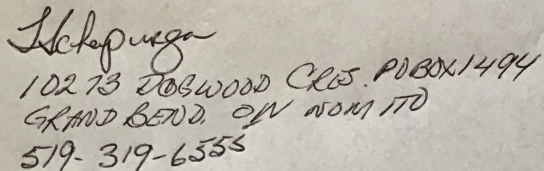 10273 DOGWOOD CRES. PO BOX 1494
GRAND BEND. ON N0M 1T0
519-319-6555